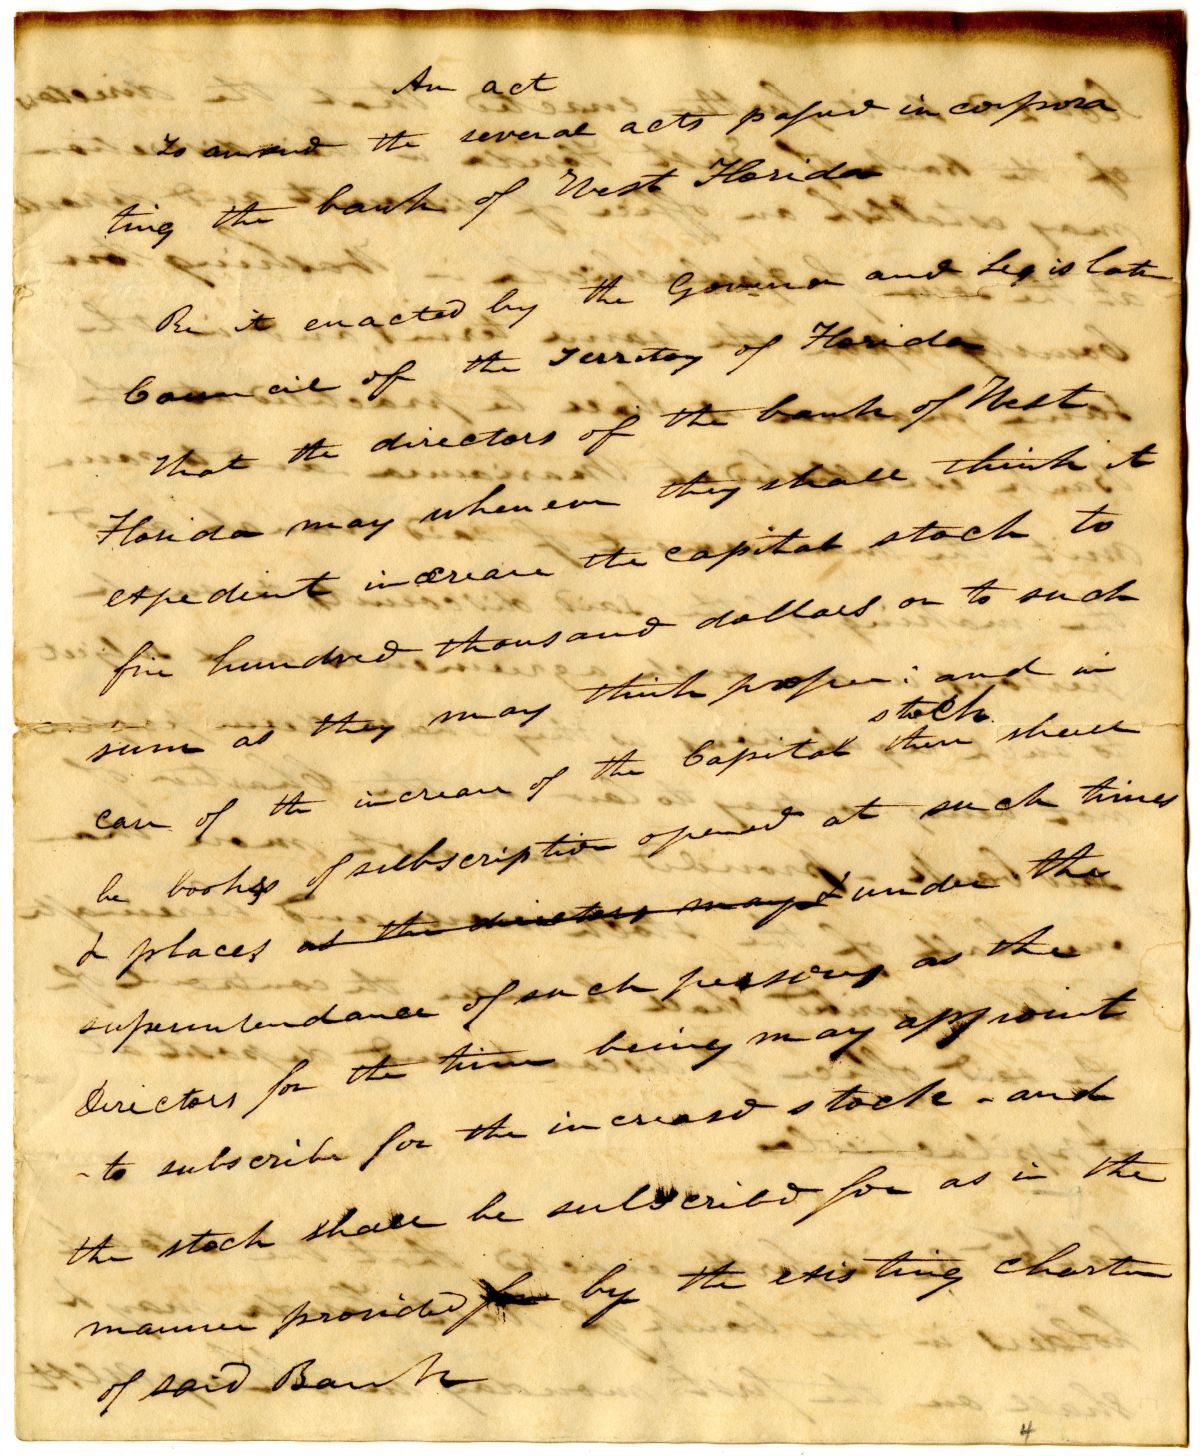 An act
To amend the several acts passed incorpora
ting the bank of West Florida
Be it enacted by the Governor and Legislate
Council of the Territoy of Florida
that the directors of the bank of West
Florida may whenever they shall think it
expedient increase the capital stock to
five hundred thousand dollars or to such
sum as they may think proper: and in
stock
case of the increase of the Capital there shall
be books of subscription opened at such times
& places as the directors may & under the
superintendance of such persons as the
Directors for the time being may appoint
- to subscribe for the increasd stock - and
the stock shall be subscribd for as in the
manner provided for by the existing charter
of said Bank
4